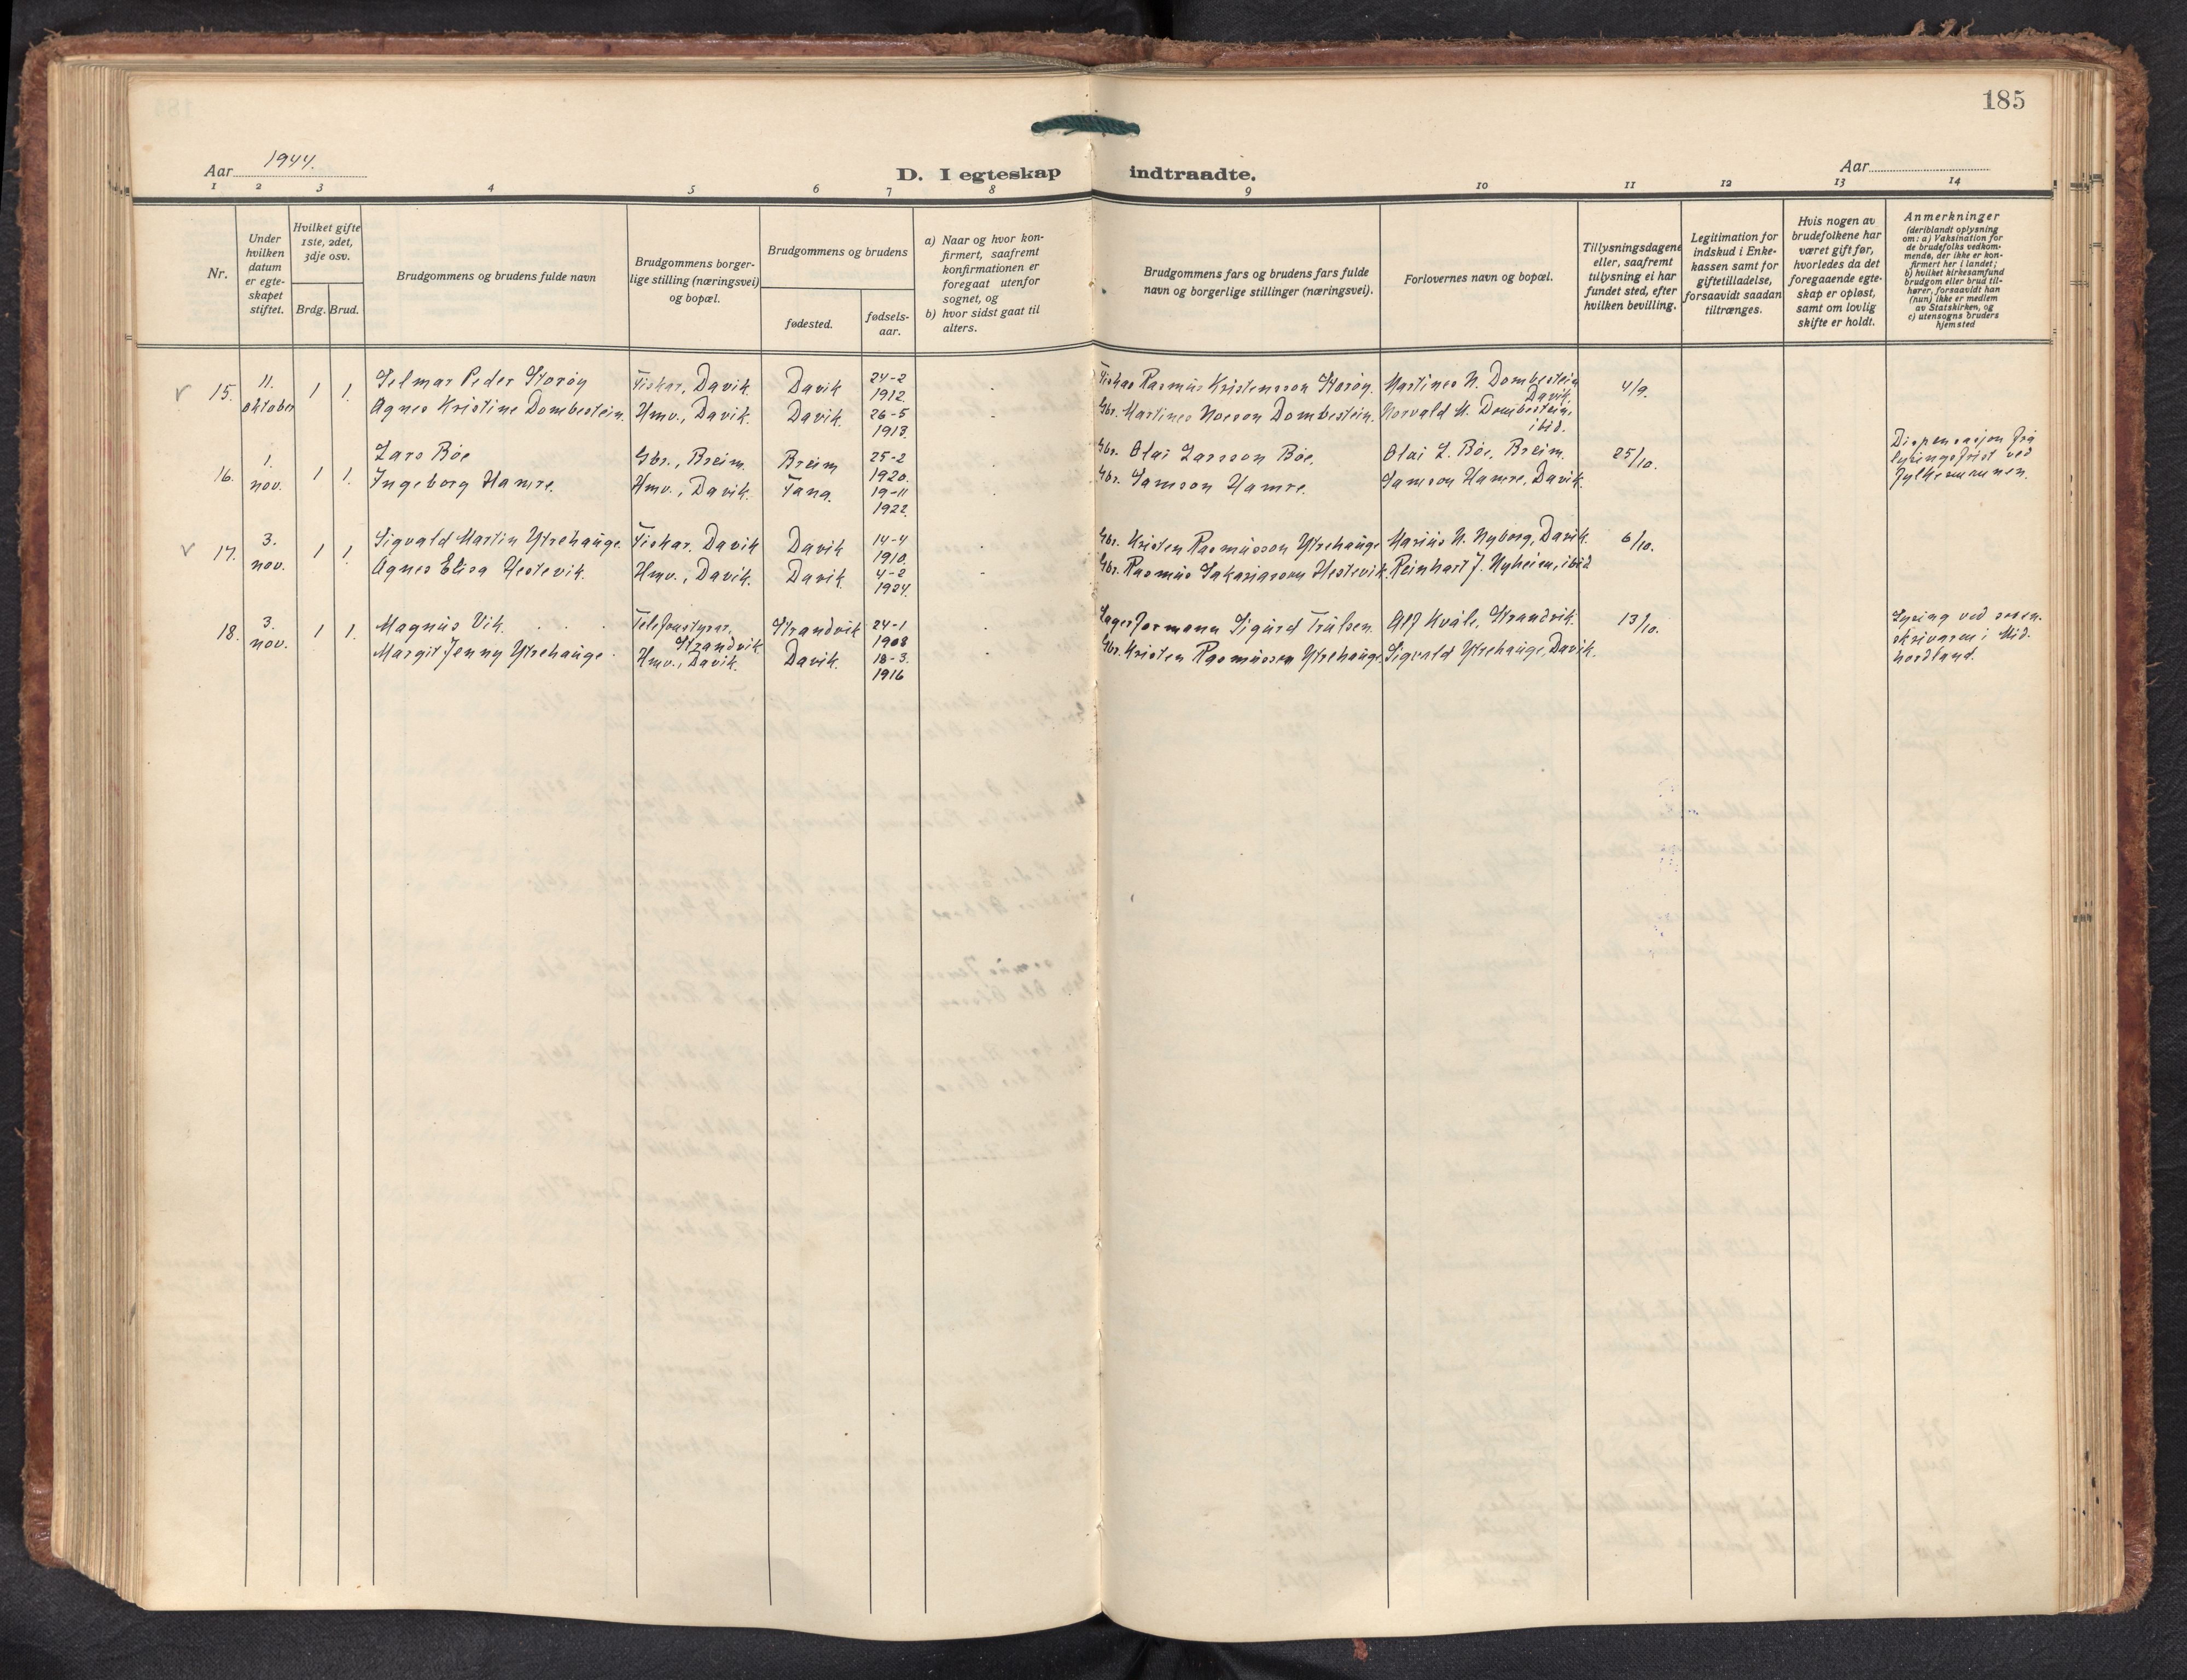 185
Aar 1944.
D. I egteskap indtraadte.
Aar
1 2 3 4 5 6 7 8 9 10 11 12 13 14
Nr.
Under
hvilken
datum
er egte-
skapet
stiftet.
Hvilket gifte
1ste, 2det,
3dje osv.
Brdg. Brud.
Brudgommens og brudens fulde navn
Brudgommens borger-
lige stilling (næringsvei)
og bopæl.
Brudgommens og brudens
fødested.
fødsels-
aar.
a) Naar og hvor kon-
firmert, saafremt
konfirmationen er
foregaat utenfor
sognet, og
b) hvor sidst gaat til
alters.
Brudgommens fars og brudens fars fulde
navn og borgerlige stillinger (næringsvei).
Forlovernes navn og bopæl.
Tillysningsdagene
eller, saafremt
tillysning ei har
fundet sted, efter
hvilken bevilling.
Legitimation for
indskud i Enke-
kassen samt for
giftetilladelse,
forsaavidt saadan
tiltrænges.
Hvis nogen av
brudefolkene har
været gift før,
hvorledes da det
foregaaende egte-
skap er opløst,
samt om lovlig
skifte er holdt.
Anmerkninger
(deriblandt oplysning
om: a) Vaksination for
de brudefolks vedkom-
mende, der ikke er kon-
firmert her i landet;
b) hvilket kirkesamfund
brudgom eller brud til-
hører, forsaavidt han
(hun) ikke er medlem
av Statskirken, og
c) utensogns bruders
hjemsted
v 15. 11. oktober 1 1.
Selmar Peder Storøy
Agnes Kristine Dombestein.
Fiskar, Davik
Hmv., Davik.
Davik
Davik.
24-2
1912.
26-5
1913.
Fiskar Rasmus Kristensson Storøy.
Gbr. Martines Noeson Dombestein.
Martines N. Dombestein
Davik.
Norvald M. Dombestein,
ibid.
4/9.
16. 1. nov. 1 1.
Lars Bøe
Ingeborg Hamre.
Gbr., Breim.
Hmv., Davik.
Breim
Tana.
25-2
1920.
19-11
1922.
Gbr. Olai Larsson Bøe.
Gbr. Samson Hamre.
Olai L. Bøe, Breim.
Samson Hamre, Davik.
25/10.
Dispensasjon frå
lysingsfrist ved
fylkesmannen.
v 17. 3. nov. 1 1.
Sigvald Martin Ytrehauge.
Agnes Elisa Hestevik.
Fiskar. Davik
Hmv., Davik.
Davik
Davik.
14-4
1910.
4-2
1924.
Gbr. Kristen Rasmusson Ytrehauge
Gbr. Rasmus Sakariasson Hestevik.
Marius N. Nyborg, Davik.
Reinhart J. Nyheim, ibid
6/10.
18. 3. nov. 1 1.
Magnus Vik.
Margit Jenny Ytrehauge
Telefonstyrar,
Strandvik
Hmv., Davik.
Strandvik
Davik.
24-1
1908
18-3.
1916
Lagerformann Sigurd Trulsen.
Gbr. Kristen Rasmusson Ytrehauge
Alf Kvåle, Strandvik.
Sigvald Ytrehauge, Davik.
13/10.
Lysing ved soren-
skrivaren i Mid-
hordland.